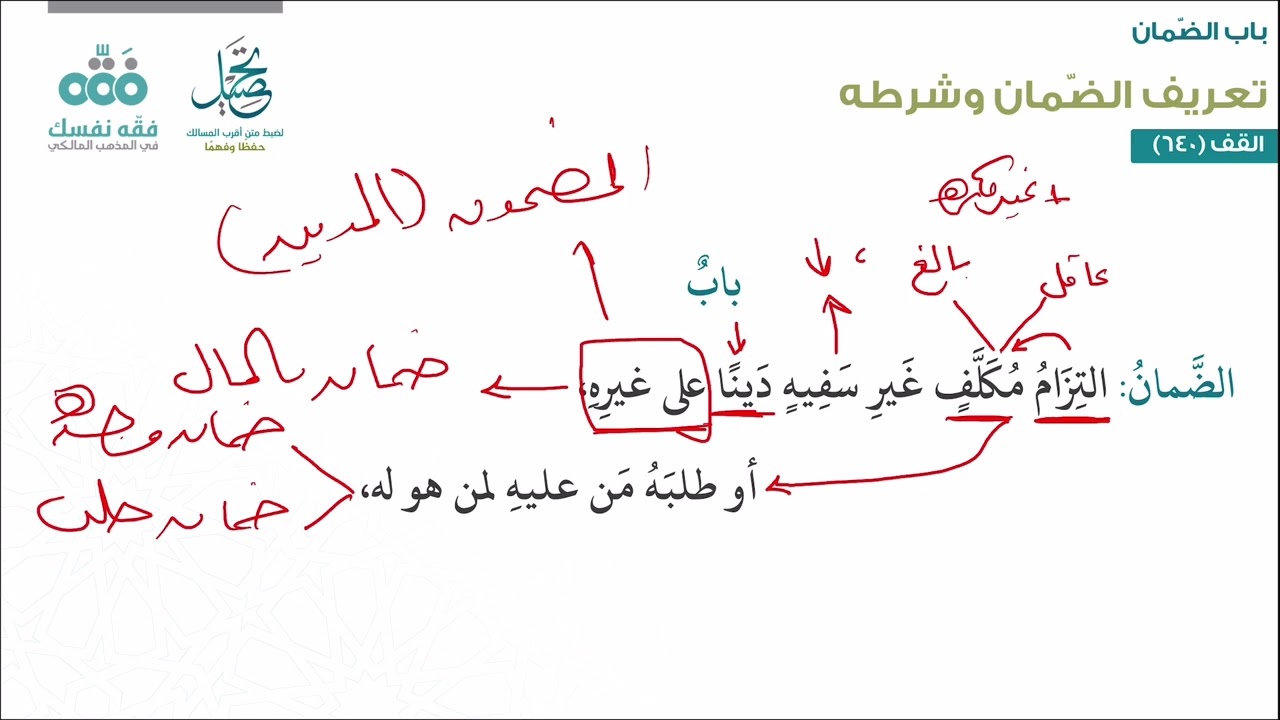 باب الضّمان
تعريف الضّمان وشرطه
القف (٦٤٠)
تحصيل
لضبط متن أقرب المسالك
حفظًا وفهمًا
فقّه نفسك
في المذهب المالكي
+ غير مكره
عاقل
بالغ
المضمون (المدين)
بابٌ
الضَّمانُ: التِزَامُ مُكَلَّفٍ غَيرِ سَفِيهٍ دَينًا على غيرِهِ،
ضمان بالمال
أو طلبَهُ مَن عليهِ لمن هو له،
ضمان وجه
ضمان طلب